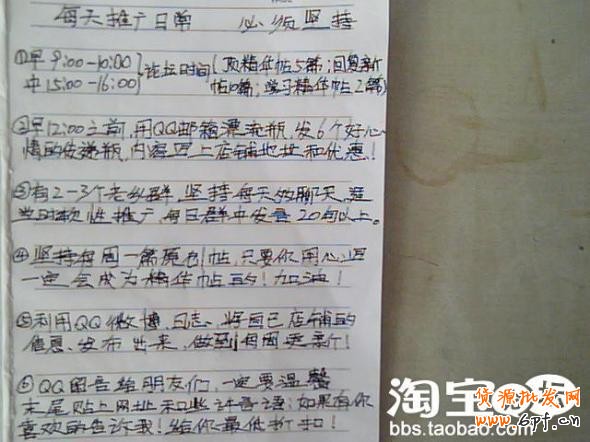 每天推广日常 必须坚持
①早9:00-10:00
中15:00-16:00
论坛时间(顶精华帖5篇;回复新
帖10篇;学习精华帖2篇)
②早12:00之前,用QQ邮箱漂流瓶,发6个好心
情的传递瓶,内容写上店铺地址和优惠!
③有2-3个老乡群,坚持每天的聊天,适
当时软性推广,每日群中发言20句以上。
④坚持每周一篇原创帖,只要你用心写
一定会成为精华帖的!加油!
⑤利用QQ微博、日志,将自己店铺的
信息,发布出来,做到每周更新!
⑥QQ留言给朋友们,一定要温馨
末尾贴上网址和些许音语:如果有你
喜欢的告诉我!给你最低折扣!
淘宝论坛
bbs.taobao.com
货源批发网
www.6pf.cn